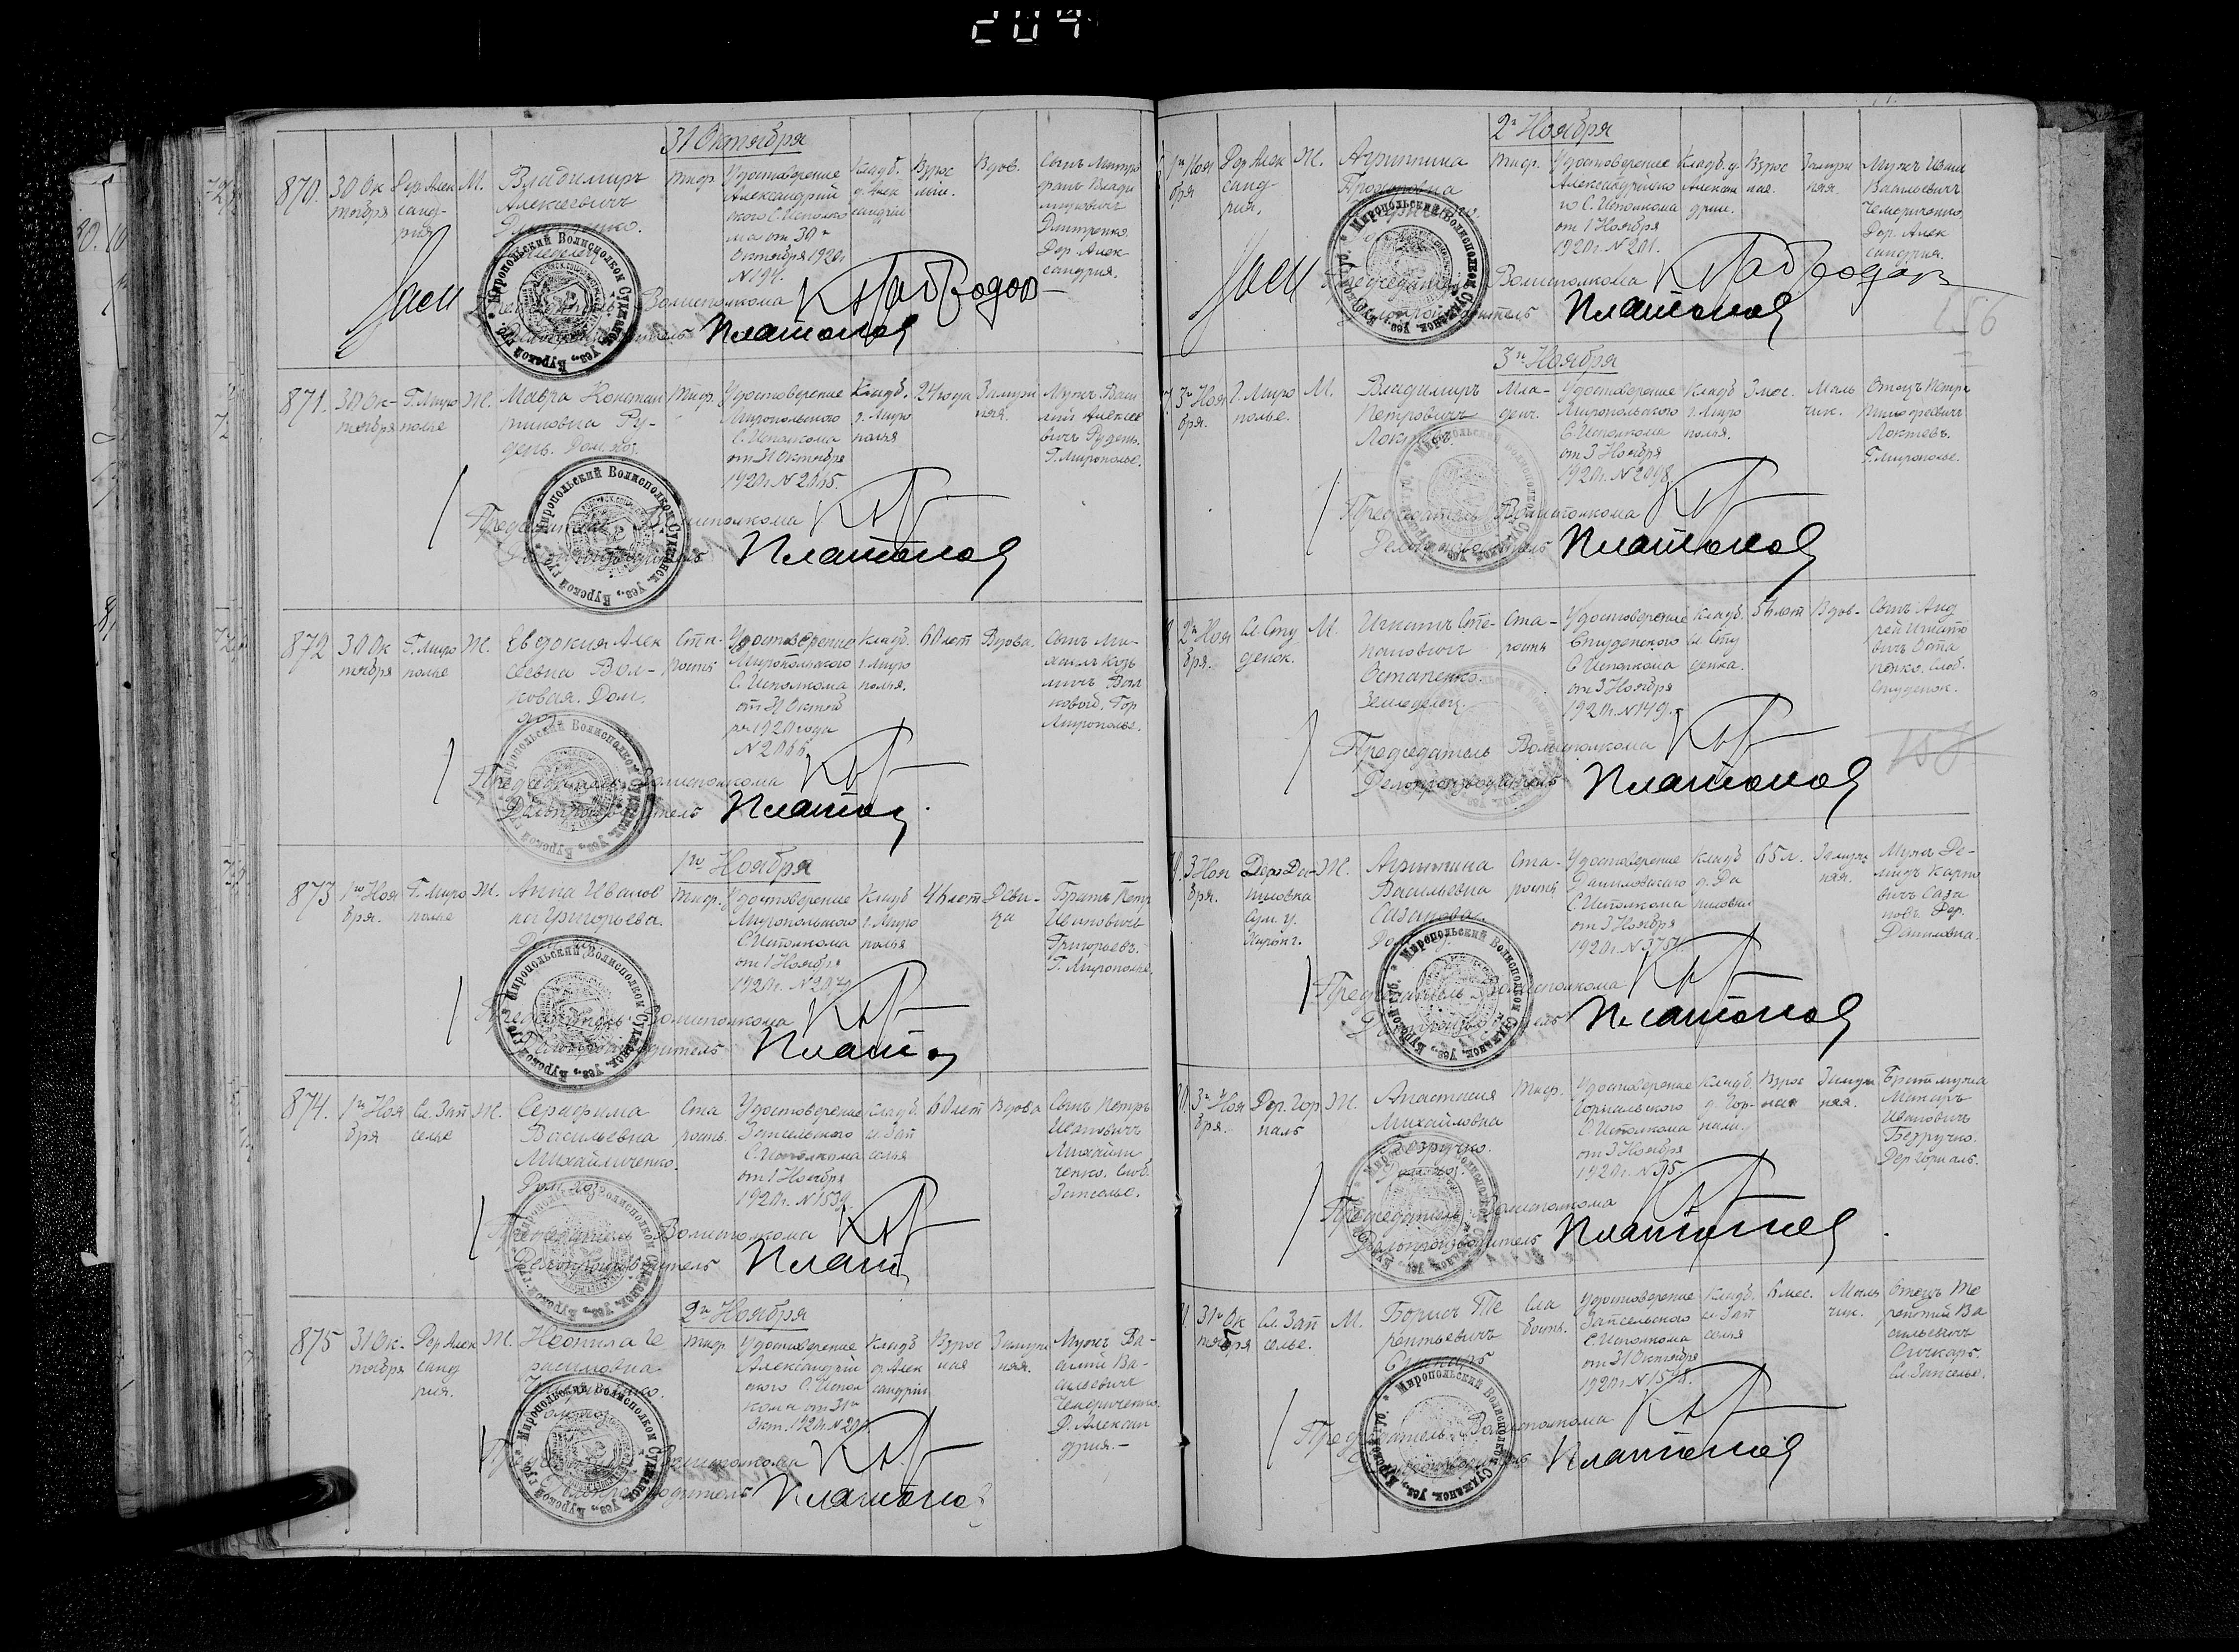 204
31 Октября
870. 30 Ок тября
Дер. Алек санд- рия
М.
Владимиръ
Алексеевичъ
Тиф.
Удостоверение
Александрий
ского С. Исполко
ма от 30го
Октября 1920г
N 194.
Кладб.
д. Алек
сандріи
Взрос
лый.
Вдов.
Сынъ Митро
фанъ Влади
мировичъ
Дмитренко.
Дер. Алек
сандрия.
Волисполкома
Платонов
871. 30 Ок- тября
Г. Миро полье
Ж.
Мавра Констан
тиновна Ру-
день. Дом. хоз.
Тиф.
Удостоверение
Миропольского
С. Исполкома
от 31 Октября
1920г. N 2065.
Кладб.
г. Миро
полья
24 года
Замужн
няя.
Мужъ Васи
лий Алексее
вичъ Рудень.
Г. Мирополье.
Председатель Волисполкома
Делопроизводитель
Платонов
872 30 Ок тября
Г. Миро полье
Ж.
Евдокия Алек
сеевна Вол-
ковая. Дом.
хоз.
Ста-
рость
Удостоверение
Миропольского
С. Исполкома
от 31 Октяб
ря 1920 года
N 2066.
Кладб.
г. Миро
полья.
60 лет
Вдова.
Сынъ Ми-
хаилъ Козь
мичъ Вол
ковой. Гор
Мирополье.
Председатель Волисполкома
Делопроизводитель
1го Ноября
873 1го Ноя бря.
Г. Миро полье
Ж.
Анна Иванов
на Григорьева.
Тиф.
Удостоверение
Миропольского
С. Исполкома
от 1 Ноября
1920г. N 2079
Кладб
г. Миро
полья
46 лет
Деви-
ца
Братъ Петр
Ивановичъ
Григорьевъ.
Г. Мирополье.
Председатель Волисполкома
Делопроизводитель
874. 1го Ноя бря
Сл. Зап селье
Ж.
Серафима
Васильевна
Михайличенко.
Дом. хоз.
Ста
рость.
Удостоверение
Запсельского
С. Исполкома
от 1 Ноября
1920г. N 1539
Кладб.
сл. Зап
селья
60 лет
Вдова
Сынъ Петръ
Ивановичъ
Михайли
ченко. Слоб.
Запселье.
Председатель Волисполкома
Делопроизводитель
2го Ноября
875 31 Ок- тября
Дер. Алек санд рия.
Ж.
Неонила Ге
расимовна
Тиф
Удостоверение
Александрий
ского С. Испол
кома от 31го
Окт. 1920г. N 200
Кладб
д. Алек
сандріи
Взрос
лая
Замужн
няя.
Мужъ Ва-
силий Ва-
сильевичъ
Чемериченко.
Д. Алексан
дрия.-
Волисполкома
Делопроизводитель
Платонов
2го Ноября
1го Ноя бря
Дер. Алек санд- рия.
Ж.
Агриппина
Тиф.
Удостоверение
Александрийско
го С. Исполкома
от 1 Ноября
1920г. N 201.
Кладб. д.
Алексан
дрии.
Взрос
лая.
Замужн
няя.
Мужъ Иван
Васильевичъ
Чемериченко.
Дер. Алек
сандрия.
Председатель Волисполкома
Делопроизводитель
Платонов
156
3го Ноября
3го Ноя бря.
Г. Миро полье.
М.
Владимиръ
Петровичъ
Локтевъ
Мла-
денч.
Удостоверение
Миропольского
С. Исполкома
от 3 Ноября
1920г. N 2098
Кладб
г. Миро
полья.
3 мес.
Маль
чик.
Отецъ Петръ
Локтевъ.
Г. Мирополье.
Председатель Волисполкома
Делопроизводитель
Платонов
2го Ноя бря.
Сл. Сту денок.
М.
Игнатъ Сте-
пановичъ
Остапенко.
Земледелец.
Ста-
рость
Удостоверение
Студенского
С. Исполкома
от 3 Ноября
1920г. N 149.
Кладб.
сл. Сту
денка.
Вдов-
Сынъ Анд
рей Игнато
вичъ Оста
пенко. Слоб.
Студенок.
Председатель Волисполкома
Делопроизводитель
Платонов
158
3 Ноя бря.
Дер. Да- ниловка
Ж.
Агриппина
Васильевна
Сазанова.
Ста-
рость
Удостоверение
Даниловского
С. Исполкома
от 3 Ноября
Кладб
д. Да
ниловки
65 л.
Замужн
няя.
Мужъ Де-
мидъ Карпо
вичъ Саза
новъ. Дер.
Даниловка.
Председатель Волисполкома
Делопроизводитель
Платонов
3го Ноя бря.
Дер. Гор наль
Ж.
Анастасия
Михайловна
Безручко.
Дом. хоз.
Тиф.
Удостоверение
Горнальского
С. Исполкома
от 3 Ноября
1920г. N 95.
Кладб.
д. Гор-
нали.
Взрос
лая
Замужн
няя.
Братъ мужа
Ивановичъ
Безручко.
Дер. Горналь.
Председатель Волисполкома
Делопроизводитель
Платонов
31го Ок тября
Сл. Зап селье.
М.
Борисъ Те
рентьевичъ
Сла
бость.
Удостоверение
Запсельского
С. Исполкома
от 31 Октября
1920г. N 1548.
Кладб.
сл. Зап
селья
6 мес.
Маль
чик.
Отецъ Те
рентий Ва
сильевичъ
Сл. Запселье.
Председатель Волисполкома
Платонов
Миропольский Волисполком Суджанск. уез., Курской губ.